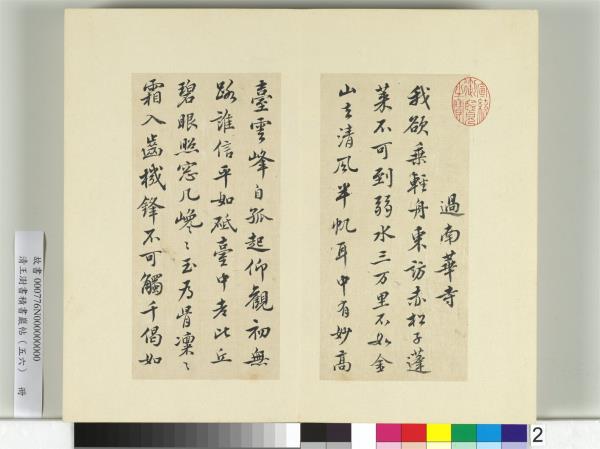 過南華寺
我欲乘輕舟東訪赤松子蓬
萊不可到弱水三万里不如金
山去清風半帆耳中有妙高
臺雲峰自孤起仰觀初無
路誰信平如砥臺中老比丘
碧眼照窓几巉〻玉為骨凜〻
霜入齒機鋒不可觸千偈如
宣統御覽之寶
故書 000776N000000000
清王澍書積書巖帖(五六) 冊
2